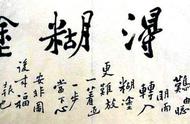 得糊塗
難由聰
明而
轉入
糊塗
更難放
一著退
一步
當下心
安非圖
後来福
報也